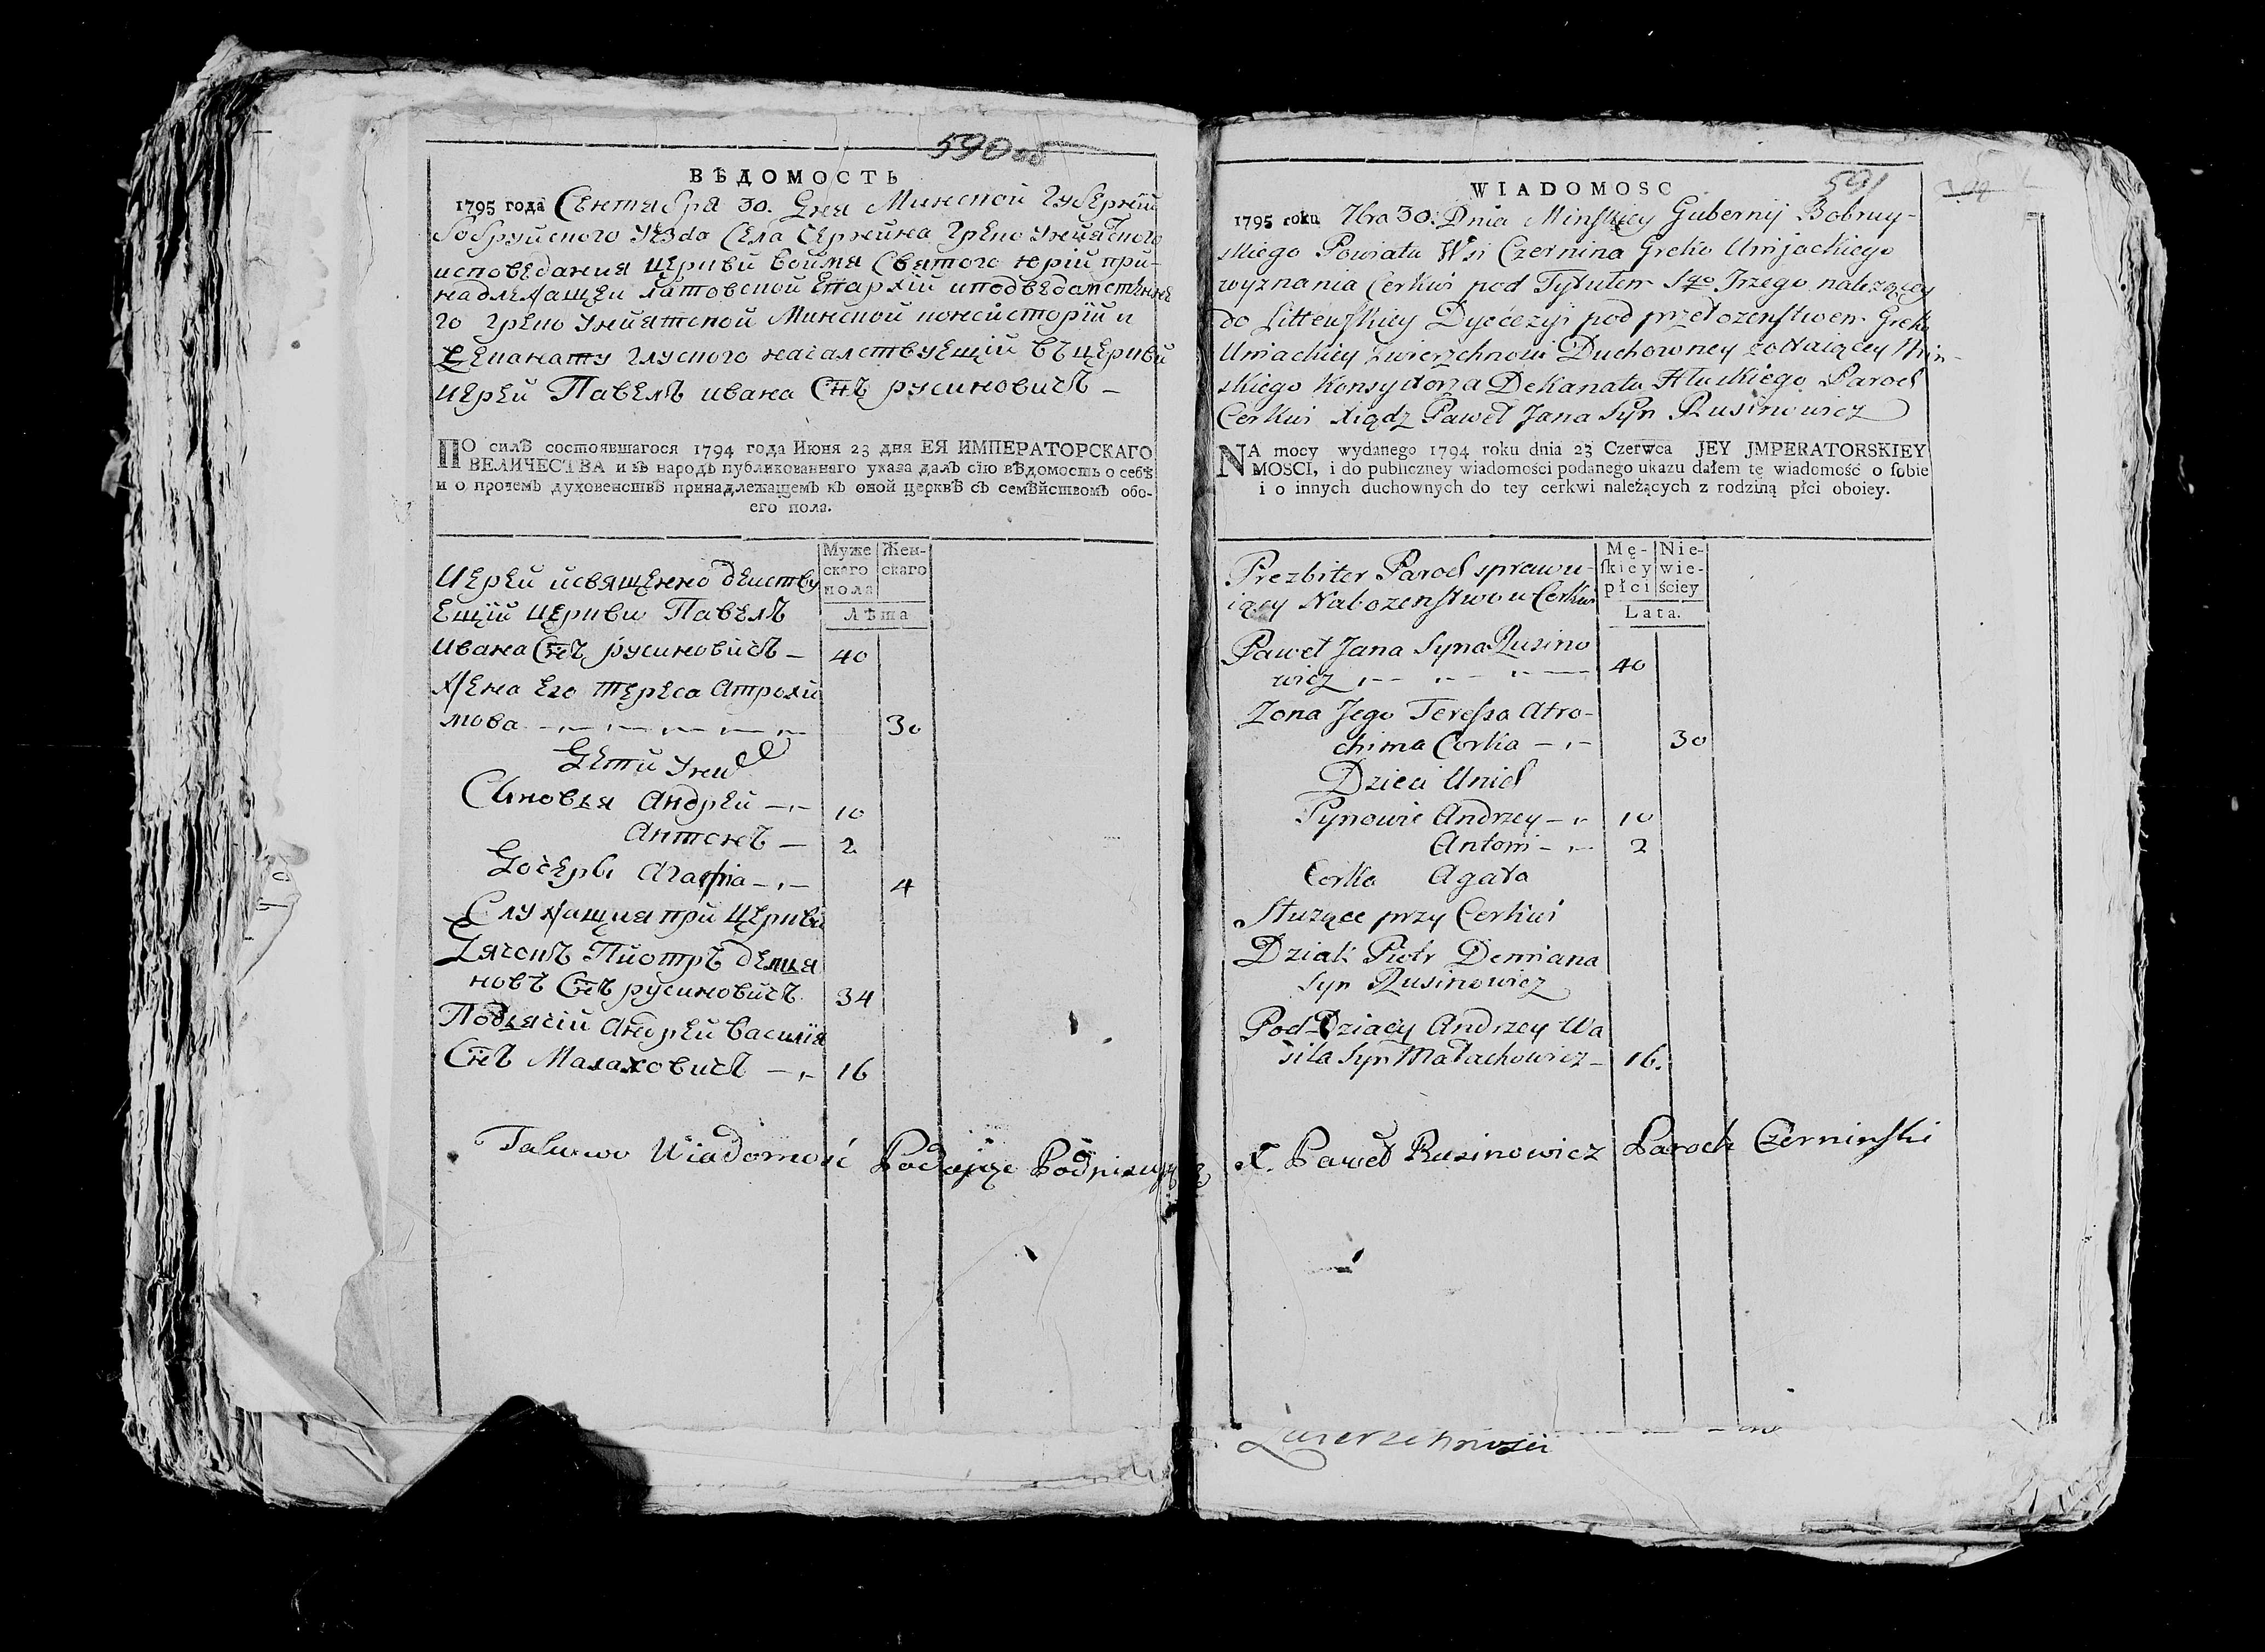 590 об
ВѢДОМОСТЬ
1795 года Сентября 30. Дня Минской Губернїи
бобруйского уѣзда Села Чернина Греко унѣятского
исповедания церкви воимя Святого юрїи при-
надлежащеи литовской Епархїи иподведомственно
го Греко унѣятской Минской консисторїи и
Деканату глуского началствуещїй въ церкви
иерей Павелъ ивана Снъ русиновичъ —
ПО силѣ состоявшагося 1794 года Июня 23 дня ЕЯ ИМПЕРАТОРСКАГО
ВЕЛИЧЕСТВА и въ народъ публикованнаго указа далъ сїю вѣдомость о себѣ
и о прочемъ духовенствѣ принадлежащемъ къ оной церквѣ съ семѣйствомъ обо-
его пола.
Муже Жен-
скаго скаго
пола
Лѣта
Иерей исвященно деиству
ещїй церкви Павелъ
ивана Снъ русиновичъ — 40
Жена Его тереса атрохи
мова 30
Дети унид
Сыновья андрей 10
антонъ — 2
Дочерь агафia 4
Служащия при церкви
Дячокъ Пиотръ демия
новъ Снъ русиновичъ 34
Подьячїи андрей василїя
Снъ Малаховичъ 16
Takowo Wiadomość Podaiąc Podpisuię
591
WIADOMOSC
1795 roku 7bra 30: Dnia Minskiey Gubernij Bobruy-
skiego Powiatu Wsi Czernina Greko Unijackiego
wyznania Cerkwi pod Tytułem Sgo Jrzego należącey
do Littewskiey Dyecezyi pod przełożenstwem Greko
Uniackiey Zwierzchnosci Duchowney Min-
skiego Konsystorza Dekanatu Hłuskiego Paroch
Cerkwi Xiądz Paweł Jana Syn Rusinowicz
NA mocy wydanego 1794 roku dnia 23 Czerwca JEY JMPERATORSKIEY
MOSCI, i do publiczney wiadomości podanego ukazu dałem tę wiadomość o sobie
i o innych duchownych do tey cerkwi należących z rodziną płci oboiey.
Mę- Nie-
skiey wie-
płci ściey
Lata.
Prezbiter Paroch sprawu-
iący Nabozenstwo w Cerkwi
Paweł Jana Syna Rusino
wicz 40
Zona Jego Teressa Atro-
chima Corka 30
Dzieci Unich
Synowie Andrzey 10
Antoni 2
Corka Agata
Służące przy Cerkwi
Dziak Piotr Demiana
Syn Rusinowicz
Pod-Dziaczy Andrzey Wa
sila Syn Małachowicz — 16.
X. Paweł Rusinowicz Paroch Czerninski
Zwierzchnosci